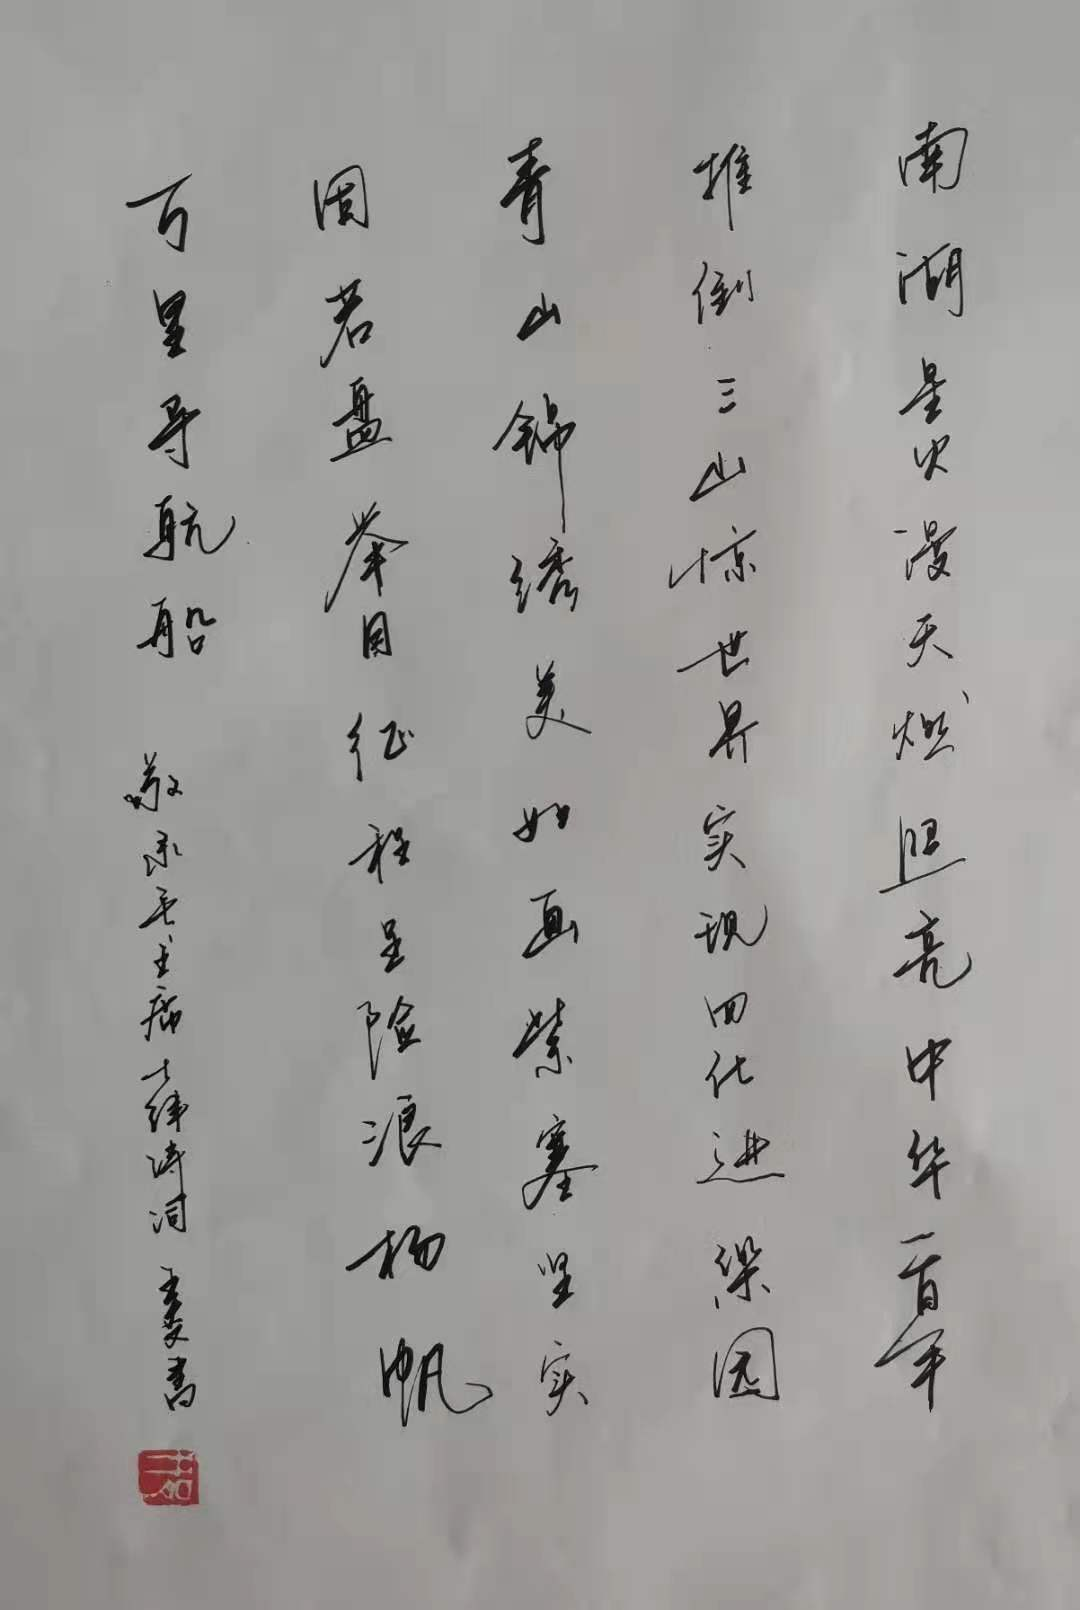 南湖星火漫天燃照亮中华一百年
推倒三山惊世界实现四化进梁园
青山锦绣美如画紫塞坚实
固若盘举目征程呈险浪杨帆
万里导航船
敬录毛主席 诗词 书